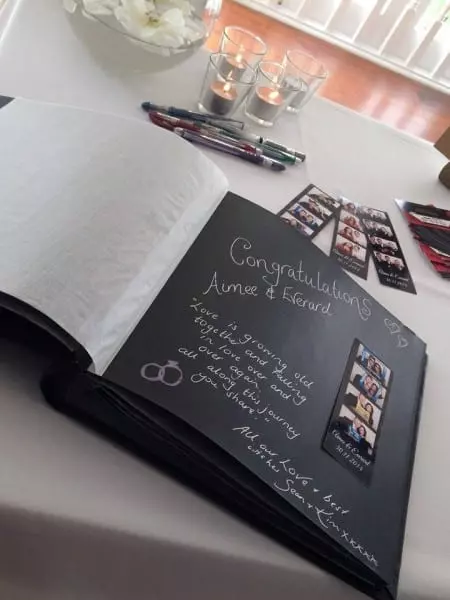 Congratulations
Aimee & Everard
"Love is growing old
together and falling
in love over and
over again and
all along this journey
you share."
All our Love & best
wishes
Sean & Kim xxxxx
Aimee & Everard
30.11.2014